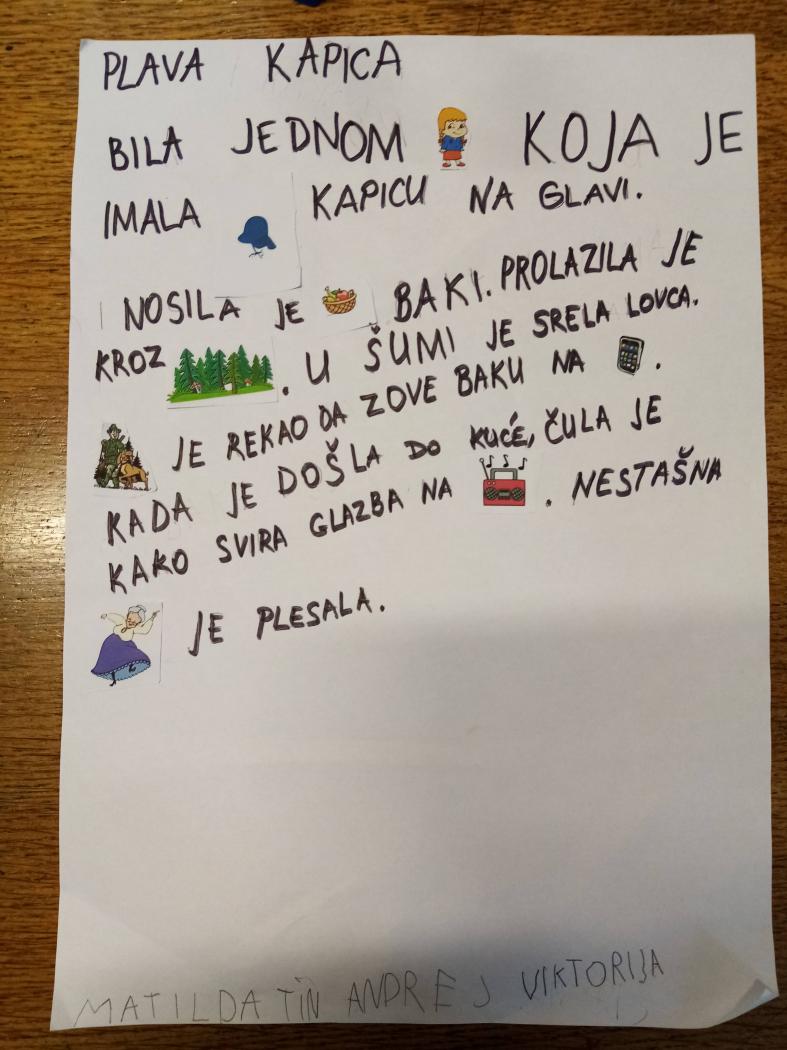 PLAVA KAPICA
BILA JEDNOM KOJA JE
IMALA KAPICU NA GLAVI.
NOSILA JE BAKI. PROLAZILA JE
KROZ . U ŠUMI JE SRELA LOVCA.
JE REKAO DA ZOVE BAKU NA .
KADA JE DOŠLA DO KUĆE, ČULA JE
KAKO SVIRA GLAZBA NA . NESTAŠNA
JE PLESALA.
MATILDA TIN ANDREJ VIKTORIJA